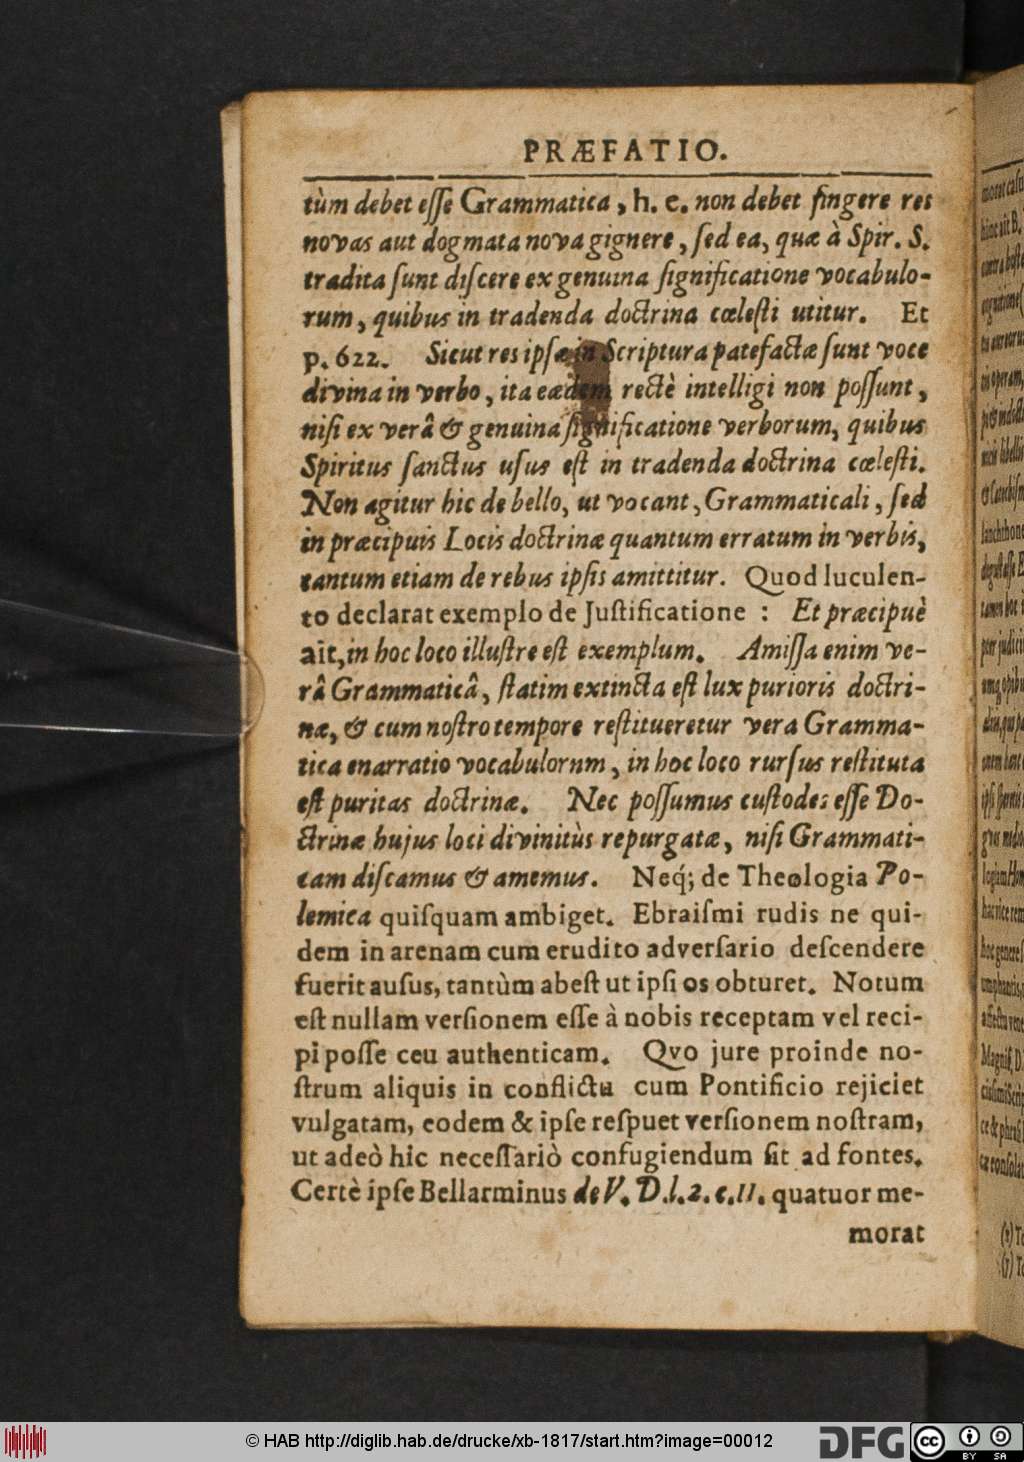 PRÆFATIO.
tùm debet eſſe Grammatica, h. e. non debet fingere res
novas aut dogmata nova gignere, ſed ea, quæ à Spir. S.
tradita ſunt diſcere ex genuina ſignificatione vocabulo-
rum, quibus in tradenda doctrina cœleſti utitur. Et
p. 622. Sicut res ipſæ in Scriptura patefactæ ſunt voce
divina in verbo, ita eædem rectè intelligi non poſſunt,
niſi ex verâ & genuina ſignificatione verborum, quibus
Spiritus ſanctus uſus eſt in tradenda doctrina cœleſti.
Non agitur hic de bello, ut vocant, Grammaticali, ſed
in præcipuis Locis doctrinæ quantum erratum in verbis,
tantum etiam de rebus ipſis amittitur. Quod luculen-
to declarat exemplo de Juſtificatione : Et præcipuè
ait, in hoc loco illuſtre eſt exemplum. Amiſſa enim ve-
râ Grammaticâ, ſtatim extincta eſt lux purioris doctri-
næ, & cum noſtro tempore reſtitueretur vera Gramma-
tica enarratio vocabulornm, in hoc loco rurſus reſtituta
eſt puritas doctrinæ. Nec poſſumus cuſtodes eſſe Do-
ctrinæ hujus loci divinitùs repurgatæ, niſi Grammati-
cam diſcamus & amemus. Neq́; de Theologia Po-
lemica quiſquam ambiget. Ebraiſmi rudis ne qui-
dem in arenam cum erudito adverſario deſcendere
fuerit auſus, tantùm abeſt ut ipſi os obturet. Notum
eſt nullam verſionem eſſe à nobis receptam vel reci-
pi poſſe ceu authenticam. Qvo jure proinde no-
ſtrum aliquis in conflictu cum Pontificio rejiciet
vulgatam, eodem & ipſe reſpuet verſionem noſtram,
ut adeò hic neceſſariò confugiendum ſit ad fontes.
Certè ipſe Bellarminus de V. D. l. 2. c. 11. quatuor me-
morat
© HAB http://diglib.hab.de/drucke/xb-1817/start.htm?image=00012
DFG
cc
BY SA